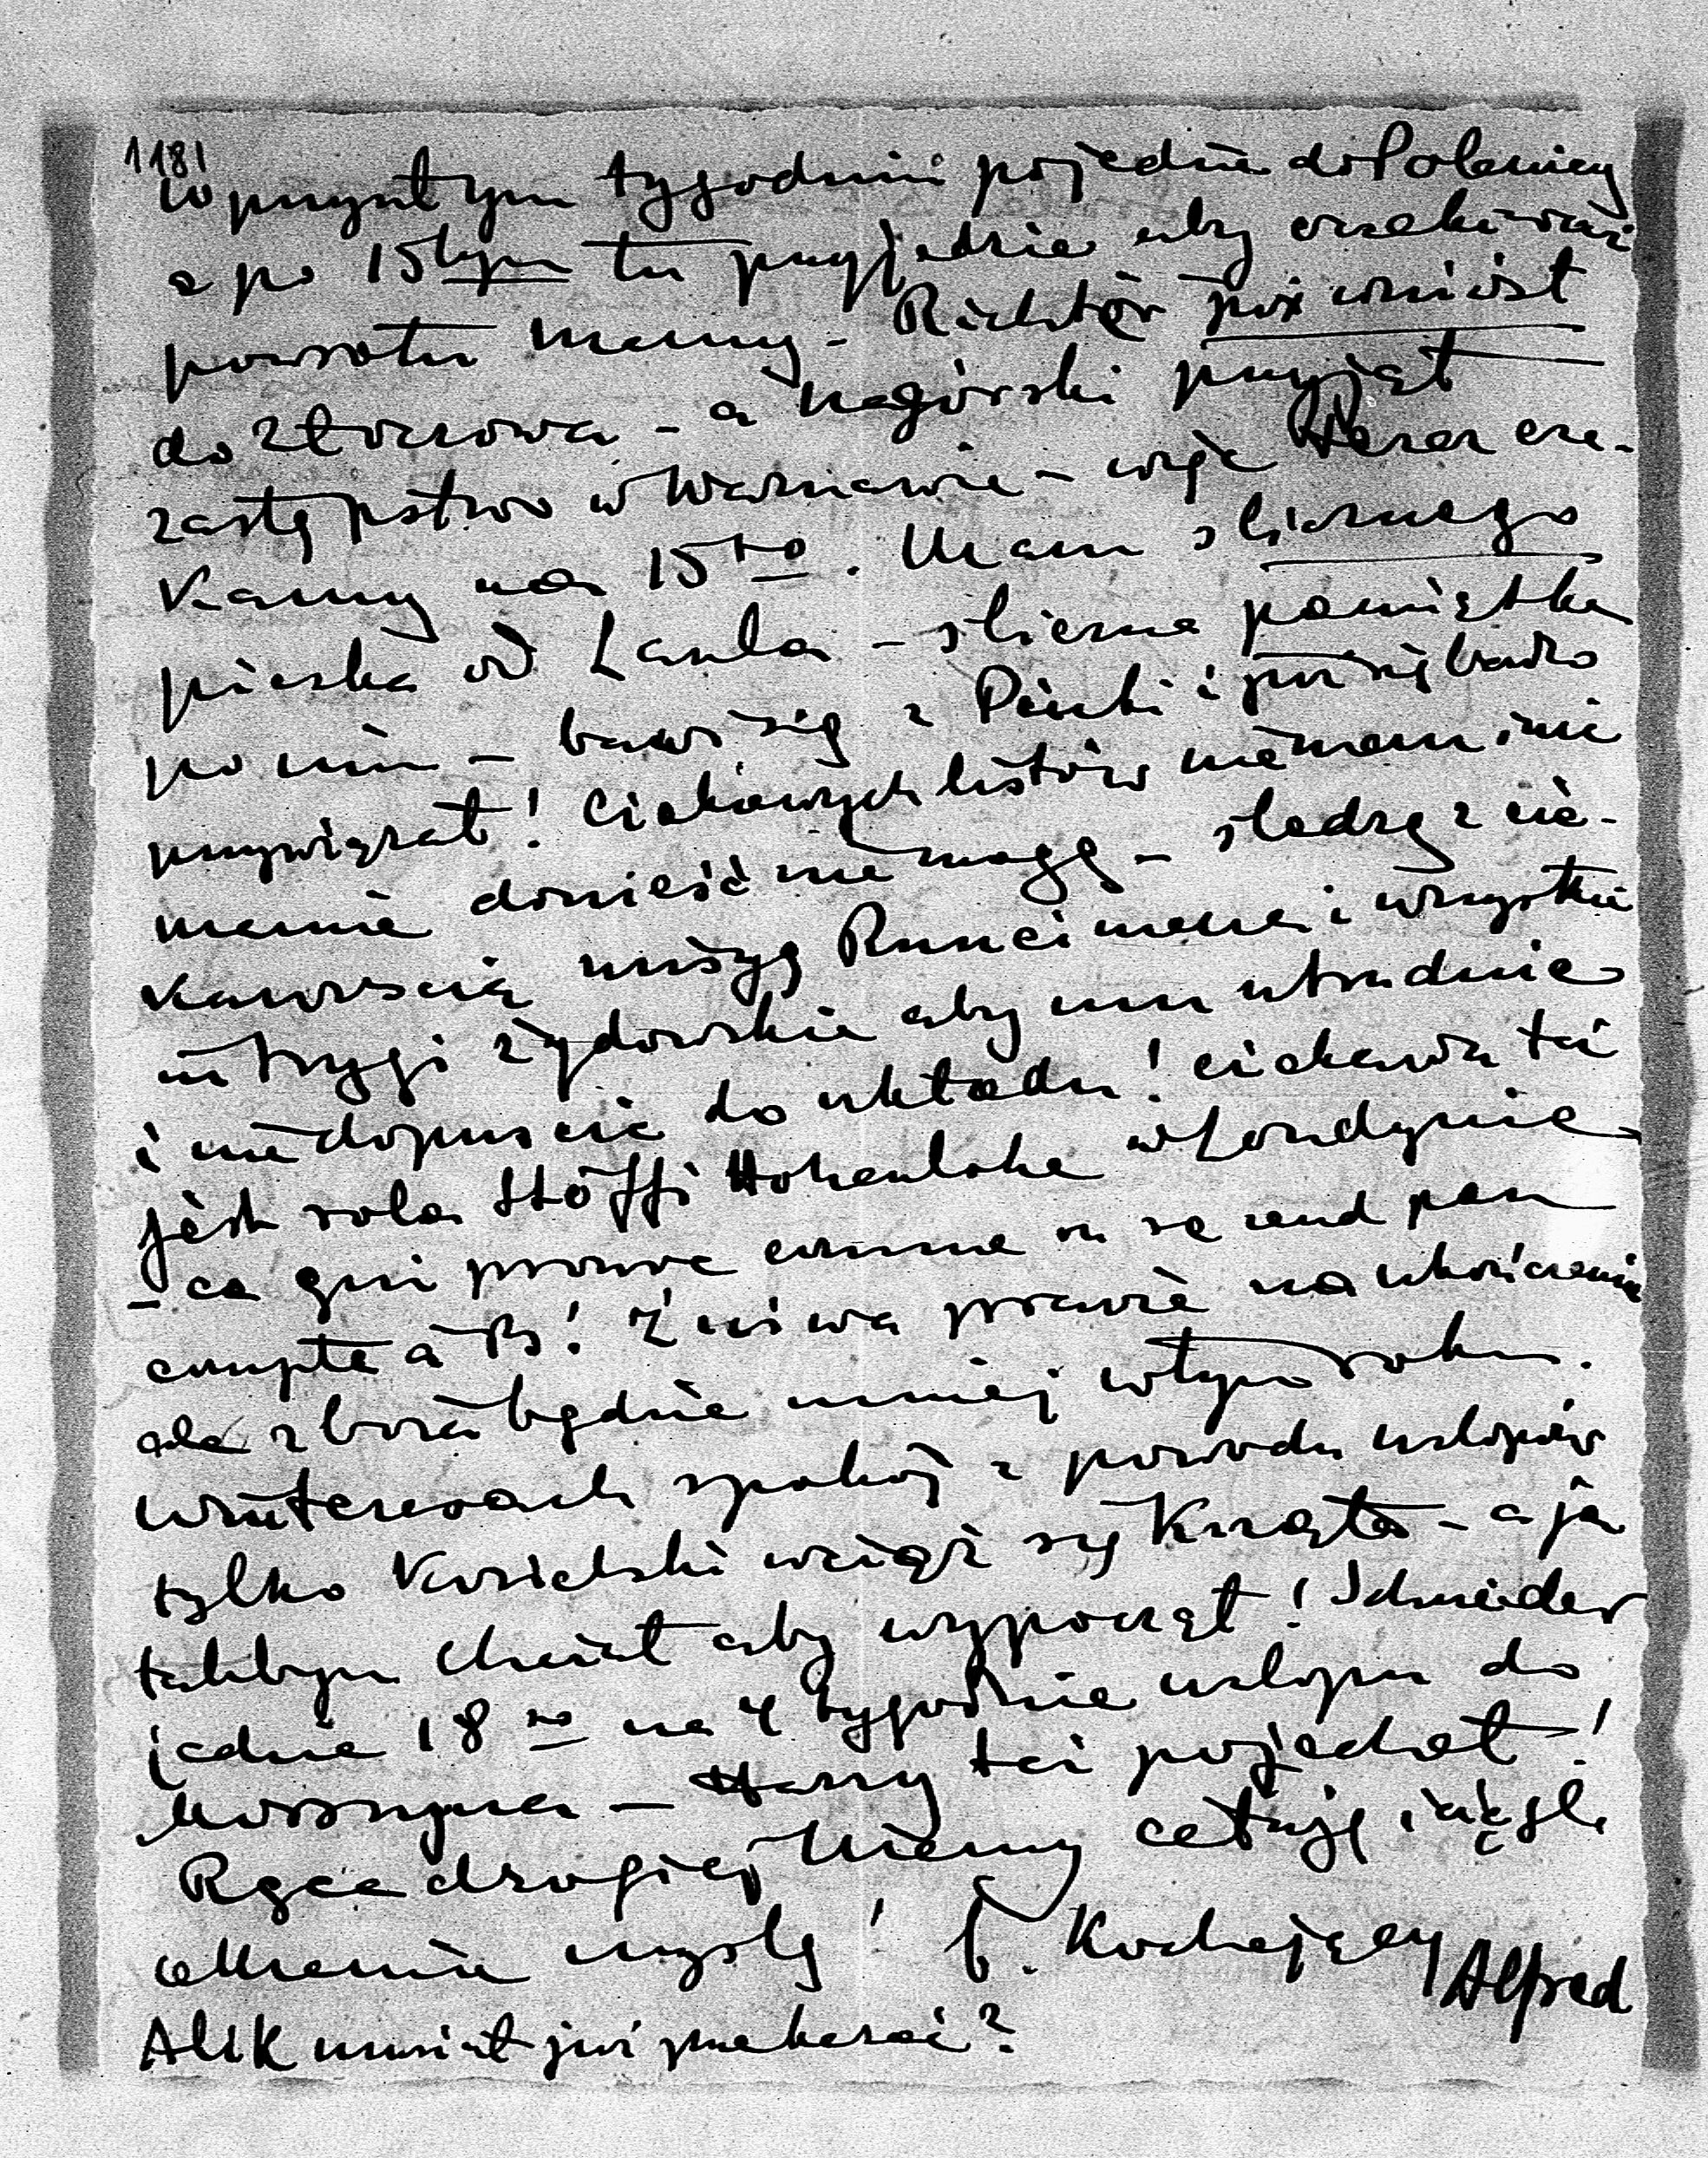 1181
W przyszłym tygodniu pojedzie do Polanicy
a po 15tym tu przyjedzie aby oczekiwać
powrotu Mamy - Richter już wniósł
do Złoczowa - a Nagórski przyjął
zastępstwo w Warszawie - więc teraz cze-
kamy na 15го. Mam ślicznego
pieska od Laula - śliczna pamiątka
po nim - bawi się z Pinki i już się bardzo
przywiązał! Ciekawych listów nie mam, nic
mamie donieść nie mogę - śledzę z cie-
kawością misyę Runcimana i wszystkie
intrygi żydowskie aby mu utrudnić
i nie dopuścić do układu! ciekawa też
jest rola Stöffi Hohenlohe w Londynie
- ce qui prouve comme on se rend peu
compte à B! Żniwa prawie na ukończeniu
ale zboża będzie mniej w tym roku.
W interesach spokój z powodu urlopów
tylko Kosielski wciąż się krząta - a ja
takbym chciał aby wypoczął! Schneider
jedzie 18го na 4 tygodnie urlopu do
Morszyna - Harry też pojechał!
Ręce drogiej Mamy całuję i ciągle
o Mamie myślę! b. Kochający Alfred
Alik musiał już przekazać?